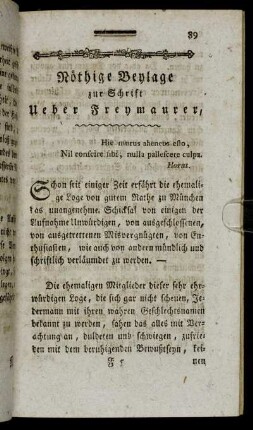 89
Nöthige Beylage
zur Schrift
Ueber Freymaurer,
Hic murus aheneus esto,
Nil conscire sibi, nulla pallescere culpa.
Horat.
Schon seit einiger Zeit erfährt die ehemali-
ge Loge von gutem Rathe zu München
das unangenehme Schicksal von einigen der
Aufnahme Unwürdigen, von ausgeschlossenen,
von ausgetretenen Misvergnügten, von En-
thusiasten, wie auch von andern mündlich und
schriftlich verläumdet zu werden. —
Die ehemaligen Mitglieder dieser sehr ehr-
würdigen Loge, die sich gar nicht scheuen, Je-
dermann mit ihren wahren Geschlechtsnamen
bekannt zu werden, sahen das alles mit Ver-
achtung an, duldeten und schwiegen, zufrie-
den mit dem beruhigenden Bewußtseyn, kei-
F 5 nen